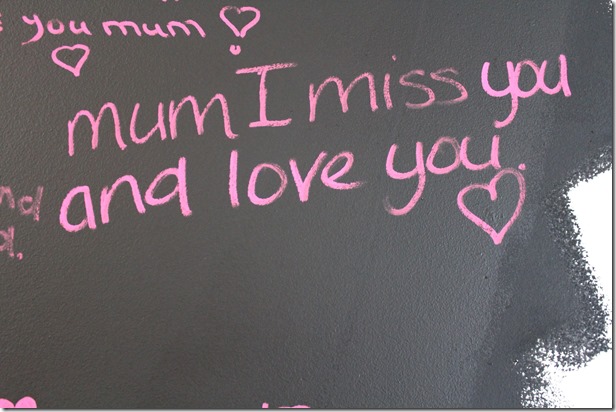 you mum
mum I miss you
and love you.